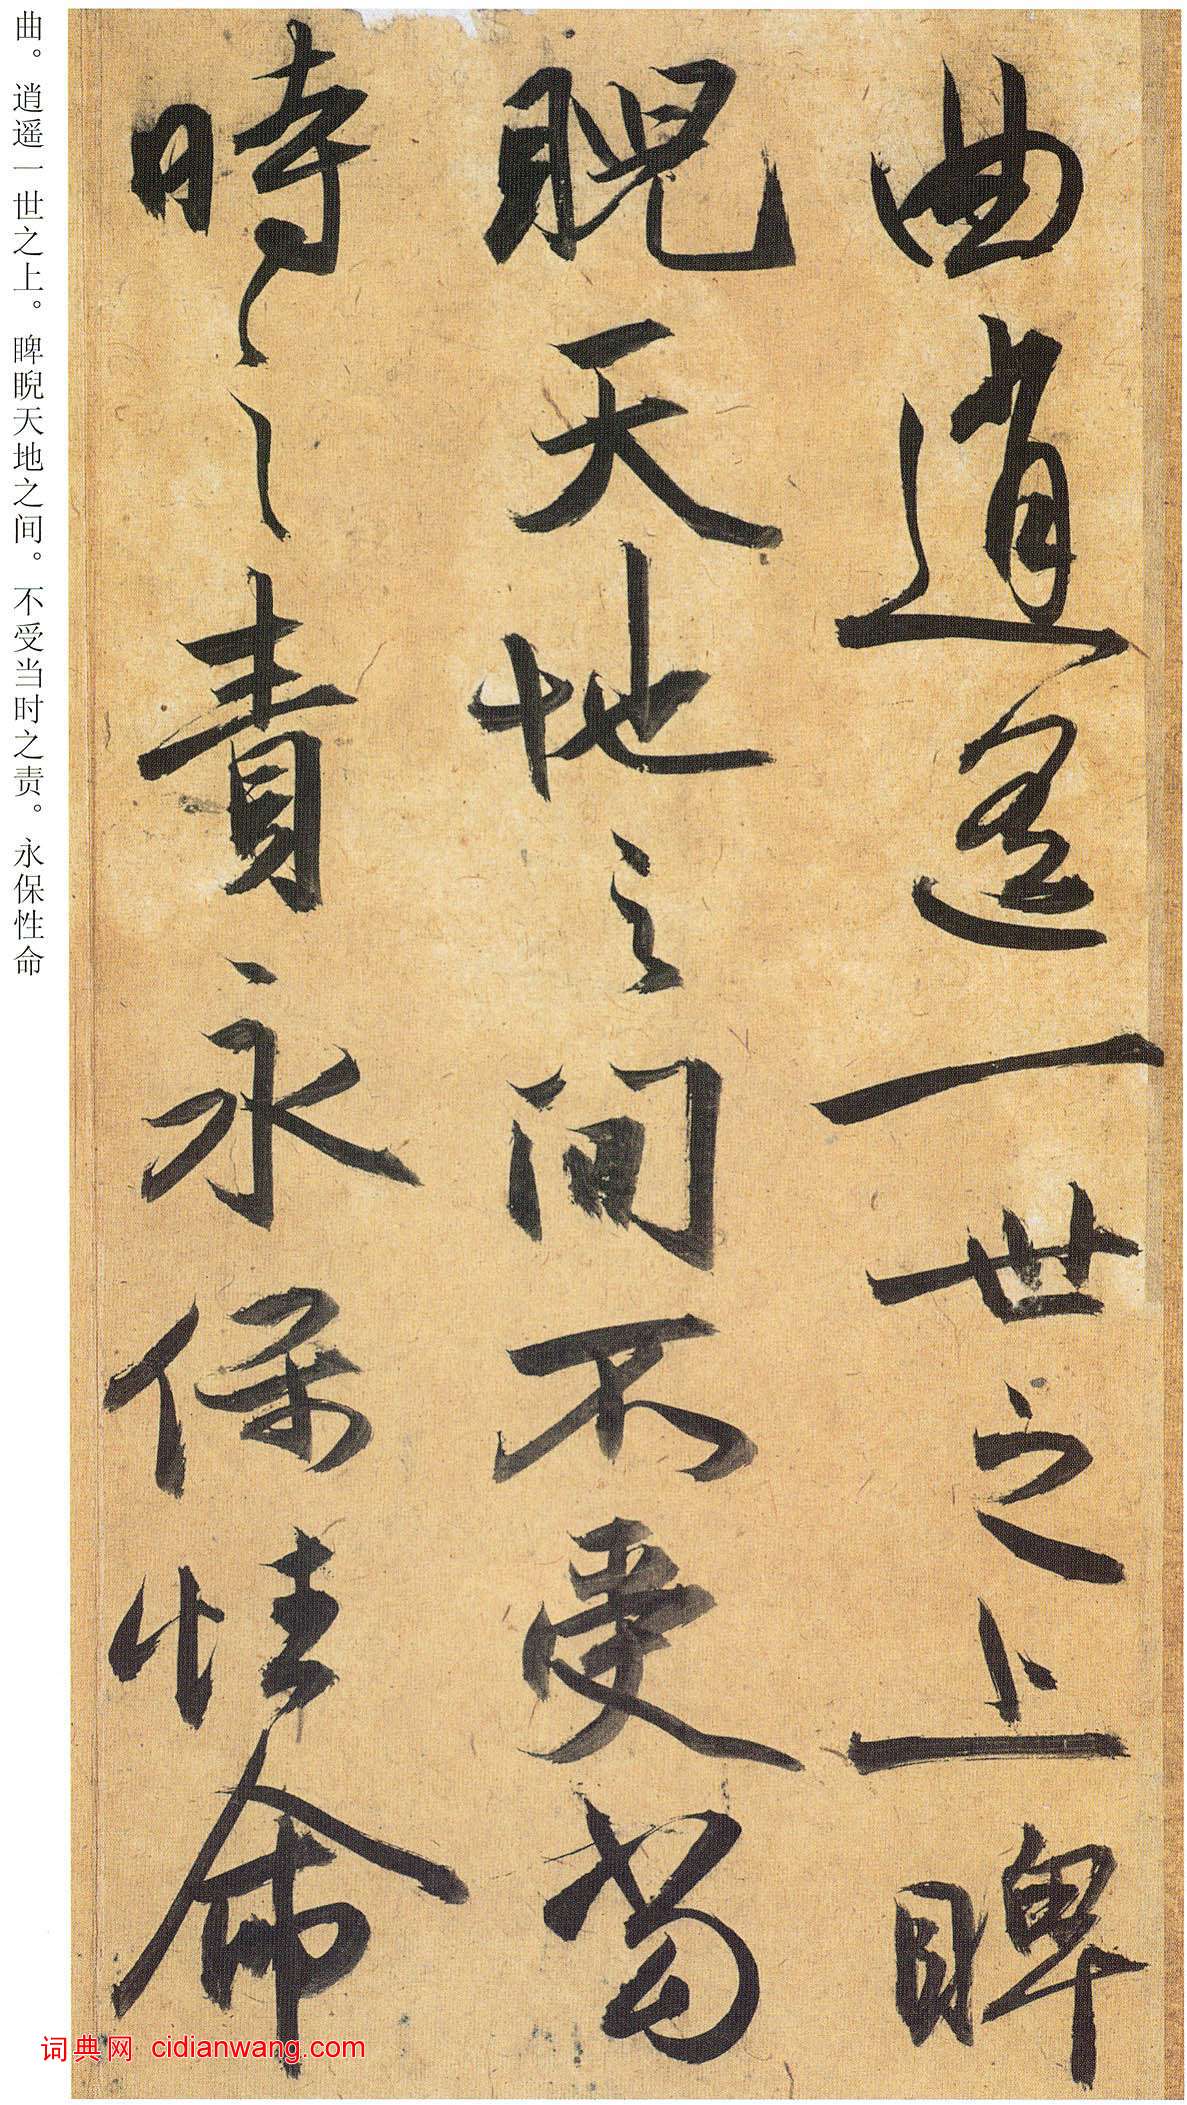 曲逍遥一世之上睥
睨天地之间不受当
時之責永保性命
曲。逍遥一世之上。睥睨天地之间。不受当时之责。永保性命
词典网 cidianwang.com